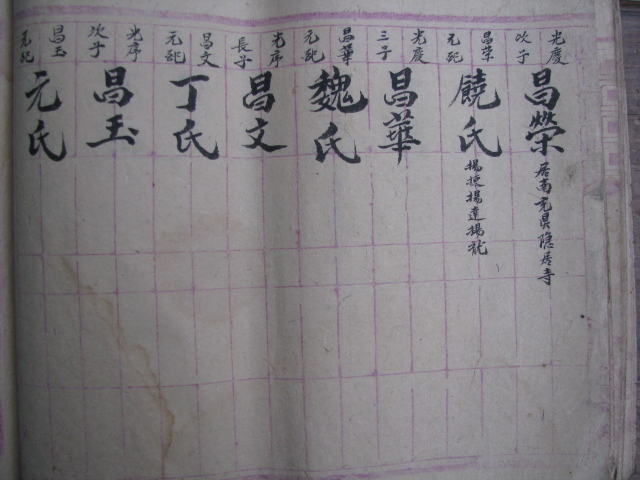 光慶
次子
昌榮
居南充县隐居寺
昌榮
元配
饒氏
揚棟揚達揚龍
光慶
三子
昌華
昌華
元配
魏氏
光序
長子
昌文
昌文
元配
丁氏
光序
次子
昌玉
昌玉
元配
元氏